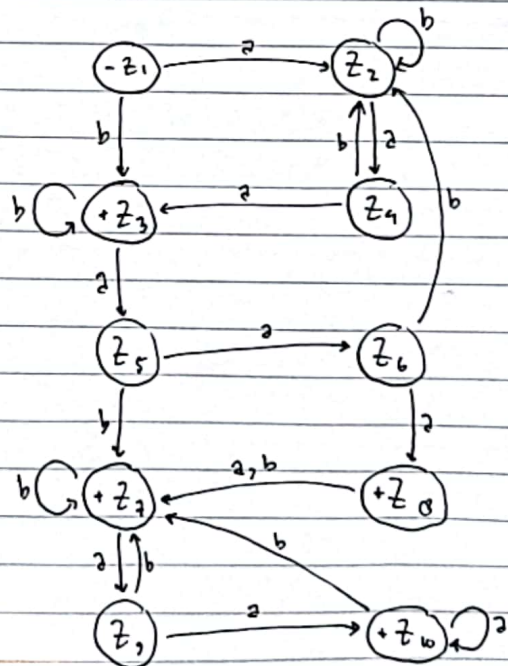 a
b
- Z₁
Z₂
b
b
a
b
+ Z₃
a
Z₄
b
a
Z₅
a
Z₆
b
a
b
+ Z₇
a, b
+ Z₈
a
b
b
Z₉
a
+ Z₁₀
a